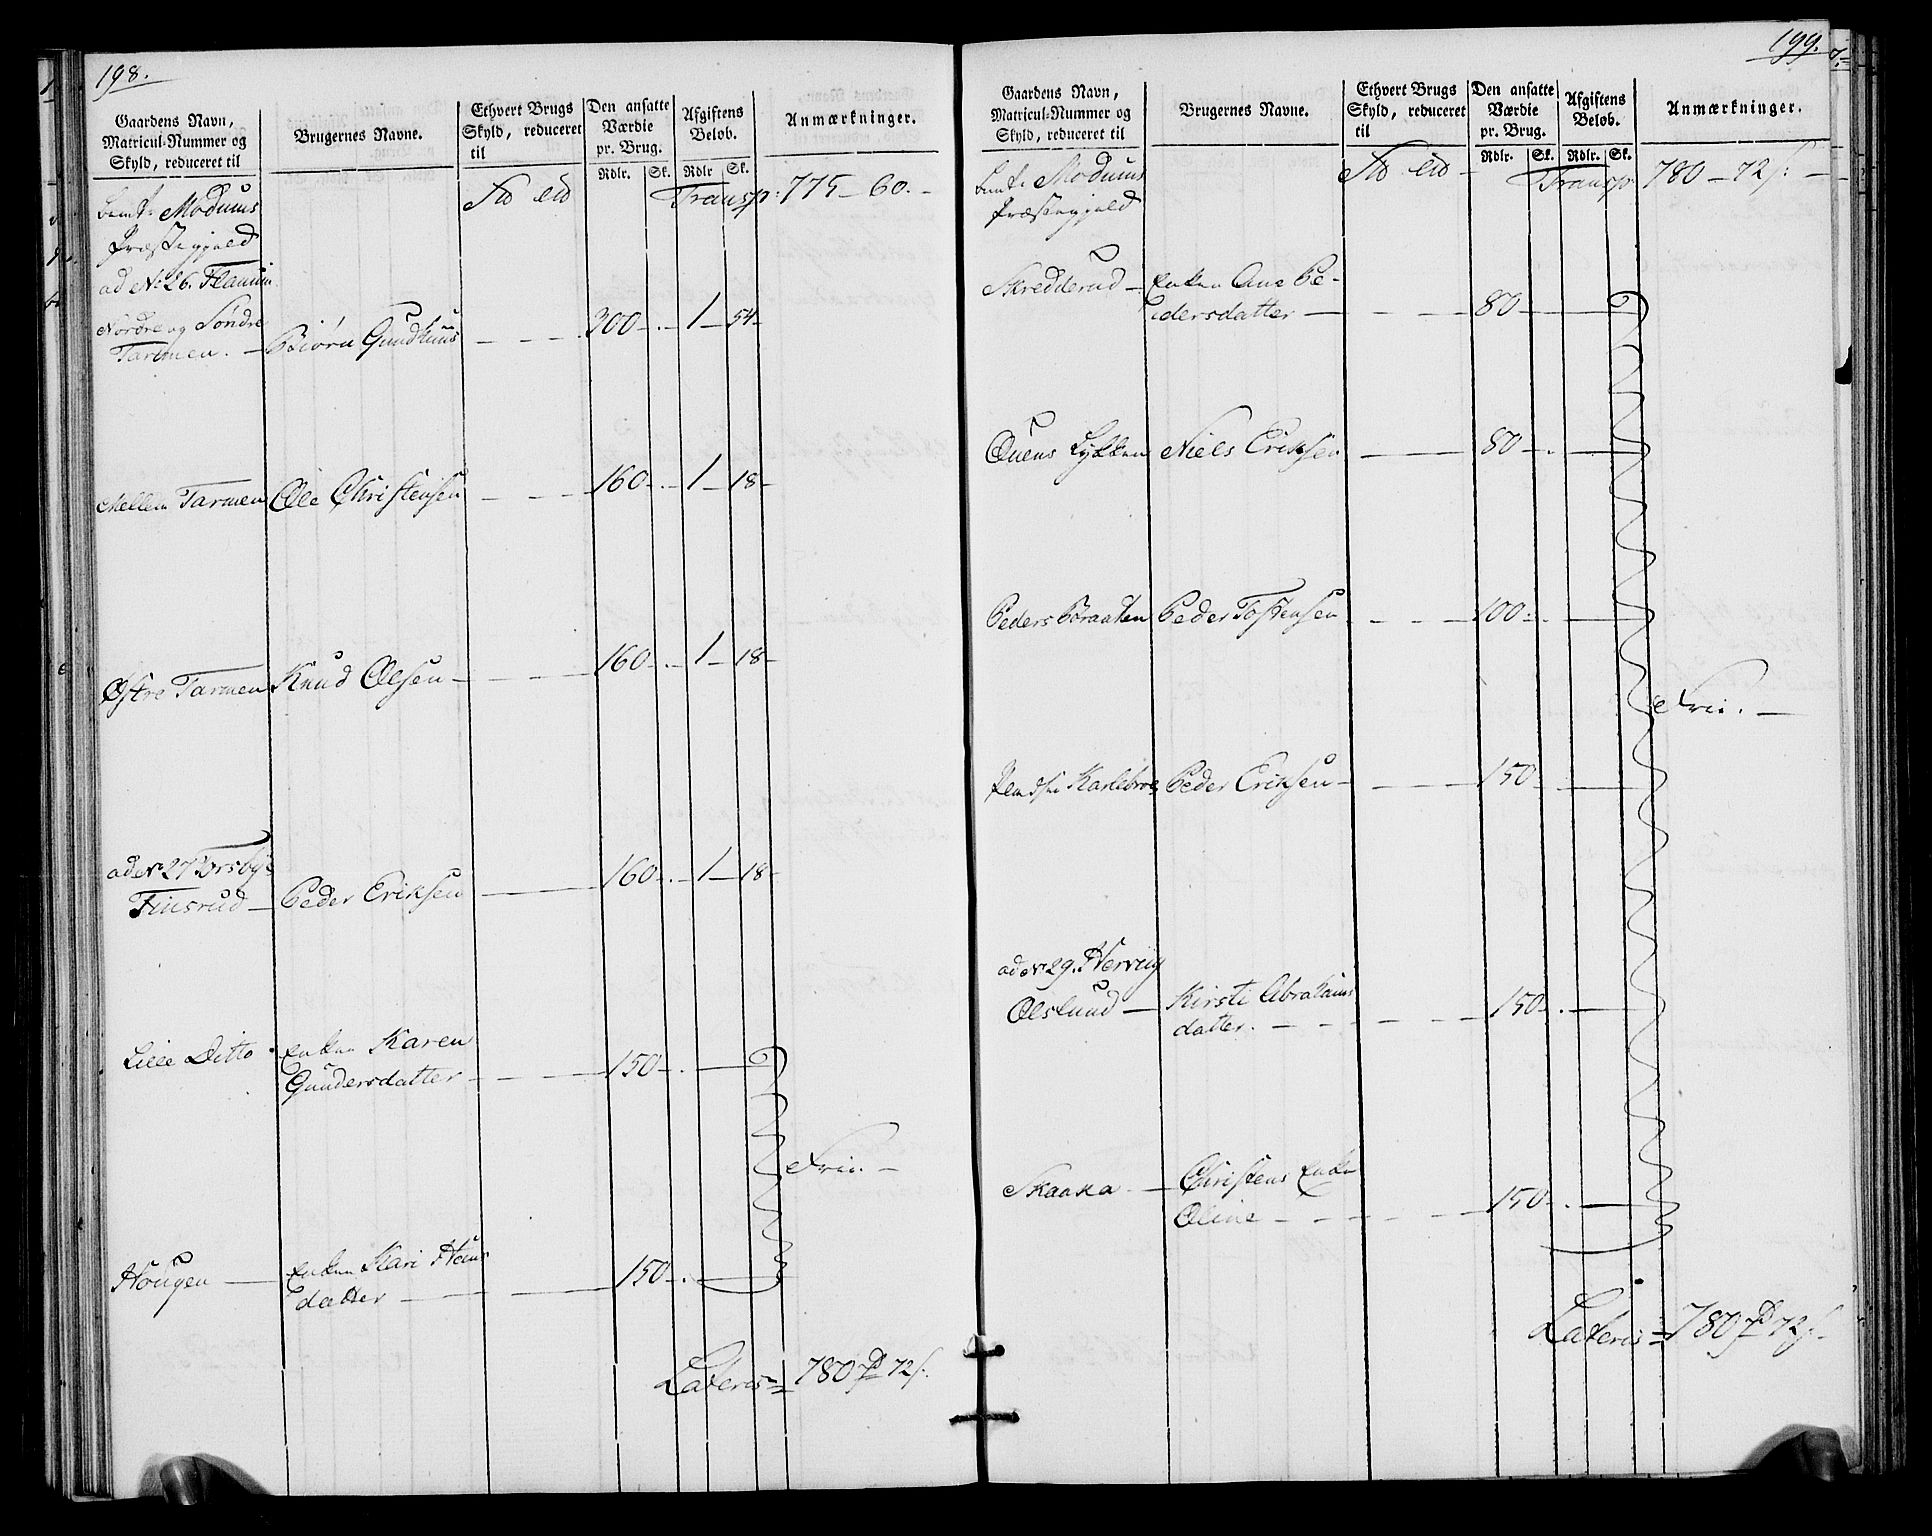 198.
Gaardens Navn, Matricul-Nummer og Skyld, reduceret til
Brugernes Navne.
Ethvert Brugs Skyld, reduceret til
Den ansatte Værdie pr. Brug.
Afgiftens Beløb.
Anmærkninger.
Rdlr. Sk. Rdlr Sk.
Modums Transp: 775 - 60. -
Præstegjeld
ad No 26. Flaauin
Nordre og Søndre
Tarmen. - Biørn Gundhuus - - - 300 - . - 1 - 54 -
Mellem Tarmen Ole Christensen - - - 160 - . - 1 - 18 -
Østre Tarmen Knud Olsen - - - 160 - . - 1 - 18 -
ad No 27 Forsbye
Finsrud - Peder Eriksen - - 160 - . - 1 - 18 -
Lille Ditto Enken Karen
Gundersdatter - - - 150 - . -
Frie. -
Hougen - Enken Kari Hans
datter - - 150 - . -
Lateris = 780 72 s.
199.
Gaardens Navn, Matricul-Nummer og Skyld, reduceret til
Brugernes Navne.
Ethvert Brugs Skyld, reduceret til
Den ansatte Værdie pr. Brug.
Afgiftens Beløb.
Anmærkninger.
Rdlr. Sk. Rdlr. Sk.
Modums Transp 780 - 72 s. -
Præstegjeld
Skredderud - Enken Ane Pe-
dersdatter - - - 80 -
Ouens Lykken Niels Eriksen - - 80 - . -
Peders Braaten Peder Tostensen - - 100 - . -
Frie. -
Karlsbroe Peder Eriksen - - - 150 - . -
ad No 29. Hervig
Oeslund - Kirsti Abrahams
datter. - - - 150 - . -
Skaaka - Christens Enke
Oline - - - 150 - . -
Lateris = 780 72 s.